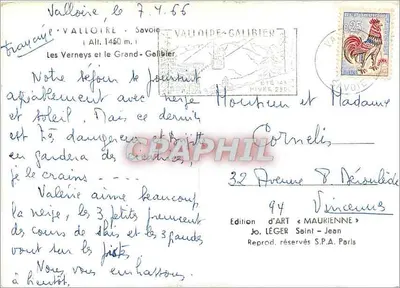 Valloire, le 7.4.66
française
VALLOIRE - Savoie
(Alt. 1450 m.)
Les Verneys et le Grand-Galibier
VALLOIRE-GALIBIER
Notre séjour se poursuit
agréablement avec neige
et soleil. Mais ce dernier
est très dangereux et
en gardera des
je le crains - - - -
Valérie aime beaucoup
la neige, les 3 petits prennent
des cours de skis et les 3 grands
vont sur les pistes
Nous vous embrassons
à bientôt.
Monsieur et Madame
Cornelis
32 Avenue P. Déroulède
94 Vincennes
Edition d'ART « MAURIENNE »
Jo. LÉGER Saint-Jean
Reprod. réservés S.P.A. Paris
CPAPHIL